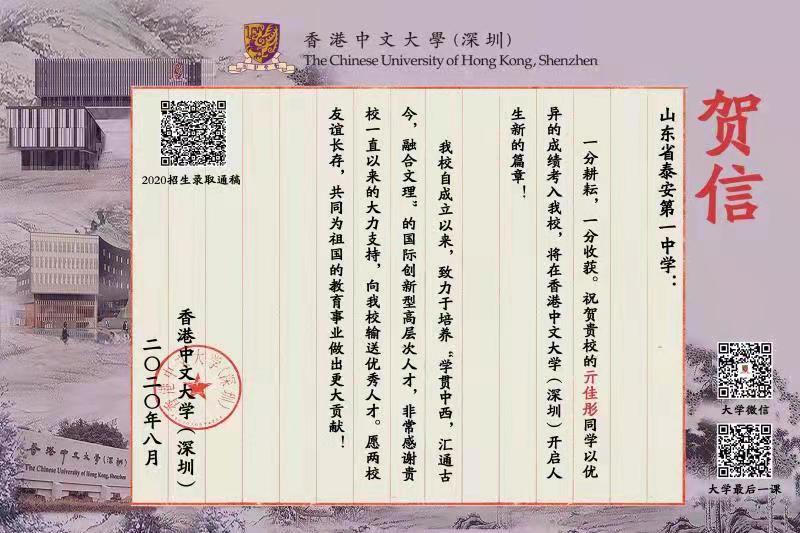 香港中文大學(深圳)
The Chinese University of Hong Kong, Shenzhen
贺信
山东省泰安第一中学：
一分耕耘，一分收获。祝贺贵校的亓佳彤同学以优
异的成绩考入我校，将在香港中文大学（深圳）开启人
生新的篇章！
我校自成立以来，致力于培养“学贯中西，汇通古
今，融合文理”的国际创新型高层次人才，非常感谢贵
校一直以来的大力支持，向我校输送优秀人才。愿两校
友谊长存，共同为祖国的教育事业做出更大贡献！
香港中文大学（深圳）
二〇二〇年八月
2020招生录取通稿
大学微信
大学最后一课
香港中文大學(深圳)
The Chinese University of Hong Kong, Shenzhen
香港中文大学(深圳)